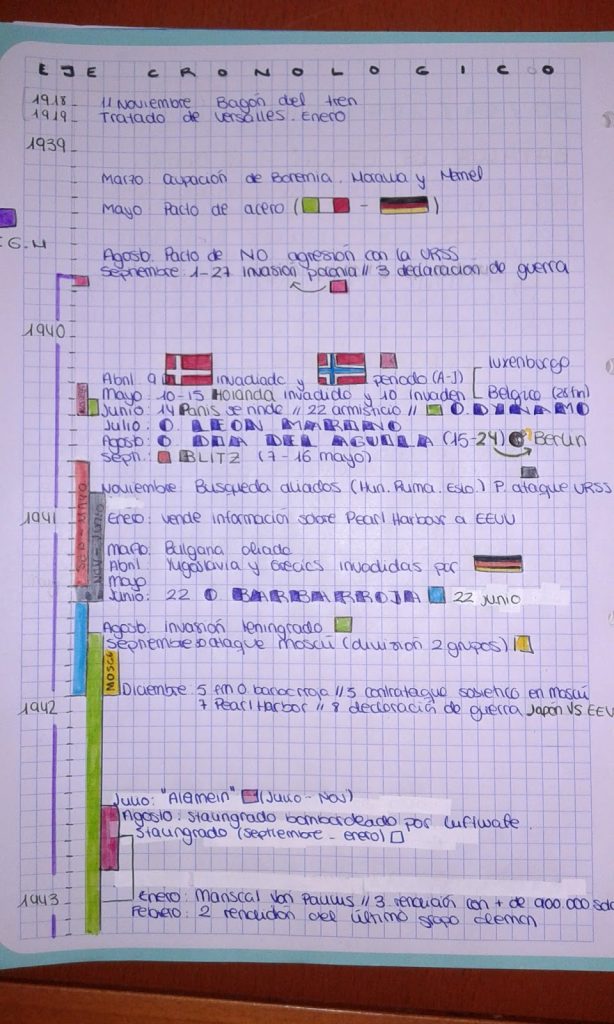 EJE CRONOLOGICO
1918 11 Noviembre Bagón del tren
1919 Tratado de Versalles. Enero
1939
Marzo: Ocupación de Boremia. Moravia y Memel
Mayo Pacto de acero ( - )
G.M
Agosto. Pacto de NO agresión con la URSS
Septiembre: 1-27 invasión polonia // 3 declaración de guerra
1940
luxemburgo
Abril 9 invadida y periodo (A-J)
Mayo: 10-15 Holanda invadido y 10 invaden Belgica (28 fin)
Junio: 14 Paris se rinde // 22 armisticio // O. DINAMO
Julio: O. LEON MARINO
Agosto: O DIA DEL AGUILA (15-24) Berlin
Sept.: BLITZ (7-16 mayo)
Noviembre. Busqueda aliados (Hun. Ruma. Eslo.) P. ataque URSS
SEP-MAYO
NOV-JUNIO
1941 Enero: vende información sobre Pearl Harbour a EEUU
Marzo: Bulgaria aliada
Abril Yugoslavia y Grecia invadidas por
Mayo
Junio: 22 O BARBARROJA 22 junio
Agosto. invasión leningrado
Septiembre ataque moscú (división 2 grupos)
MOSCÚ
Diciembre 5 fin O. barbarroja // 5 contrataque sovietico en moscú
1942 7 Pearl Harbor // 8 declaración de guerra Japón VS EEU
Julio: "Alamein" (Julio-Nov)
Agosto: Stalingrado bombardeado por Luftwafe.
Stalingrado (septiembre - enero)
1943 Enero: Mariscal Von Paulus // 3 rendición con + de 900.000 sold
Febrero: 2 rendición del último grupo aleman